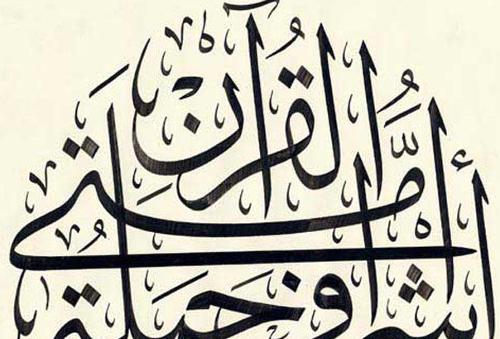 أشراف أمتي حملة القرآن